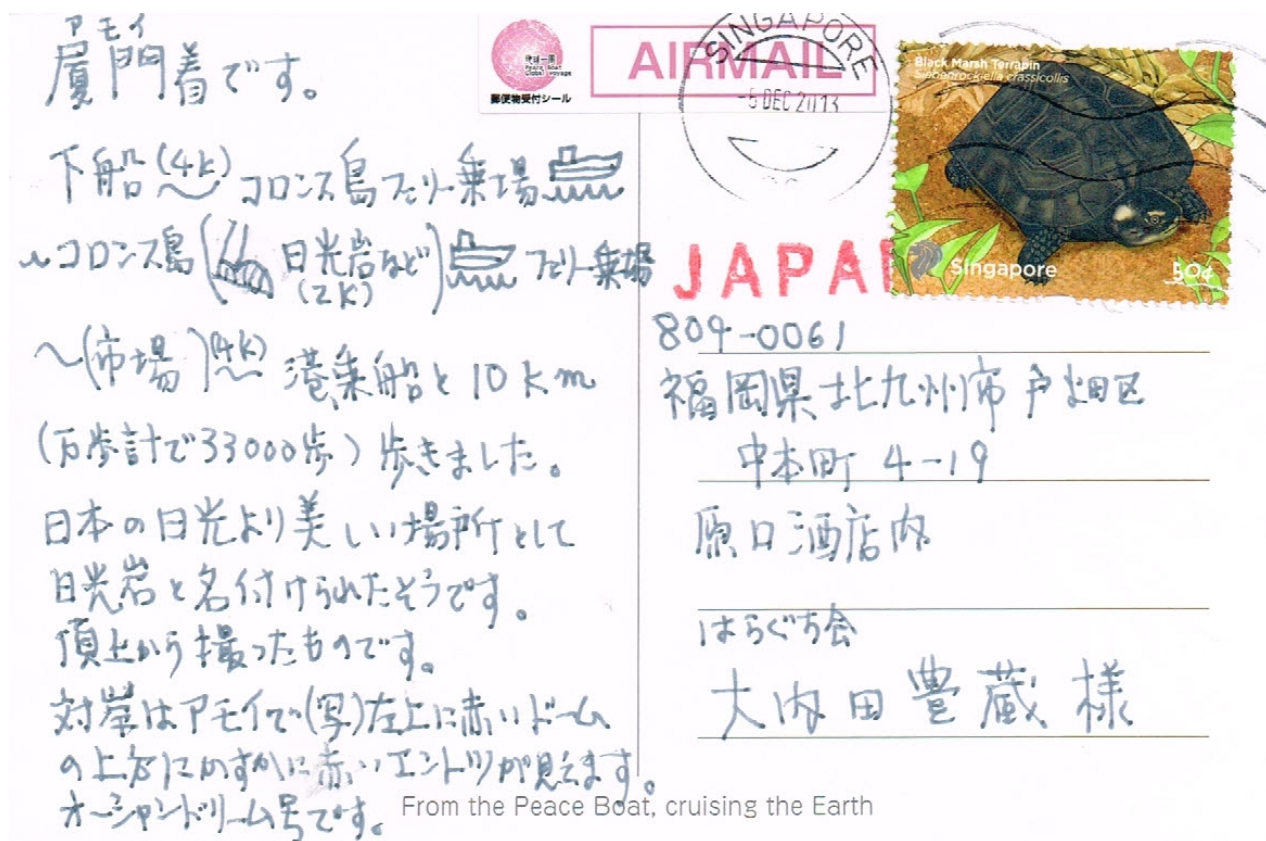 アモイ
厦門着です。
下船(4k)コロンス島フェリー乗場
〜コロンス島(日光岩など)フェリー乗場
(2K)
〜(市場)(4k)港乗船と10km
(万歩計で33000歩)歩きました。
日本の日光より美しい場所として
日光岩と名付けられたそうです。
頂上から撮ったものです。
対岸はアモイで(写)左上に赤いドーム
の上方にかすかに赤いエントツが見えます。
オーシャンドリーム号です。
From the Peace Boat, cruising the Earth
地球一周
Peace Boat
Global Voyage
郵便物受付シール
AIRMAIL
SINGAPORE
-5 DEC 2013
Black Marsh Terrapin
Siebenrockiella crassicollis
Singapore
50¢
JAPAN
804-0061
福岡県北九州市戸畑区
中本町 4-19
原口酒店内
はらぐち会
大内田豊蔵様